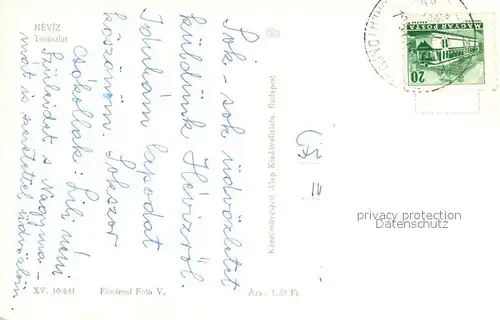 HÉVÍZ
Tórészlet
Sok-sok üdvözletet
küldünk Hévízről.
Iduhám lapodat
köszönöm. Sokszor
csókollak: Lili néni
Szüleidet s Nagyma-
mát is szeretettel üdvözlöm.
XV. 10-641
Fővárosi Fotó V.
Ára: 1.20 Ft
Képzőművészeti Alap Kiadóvállalata, Budapest
MAGYAR POSTA
20
privacy protection
Datenschutz